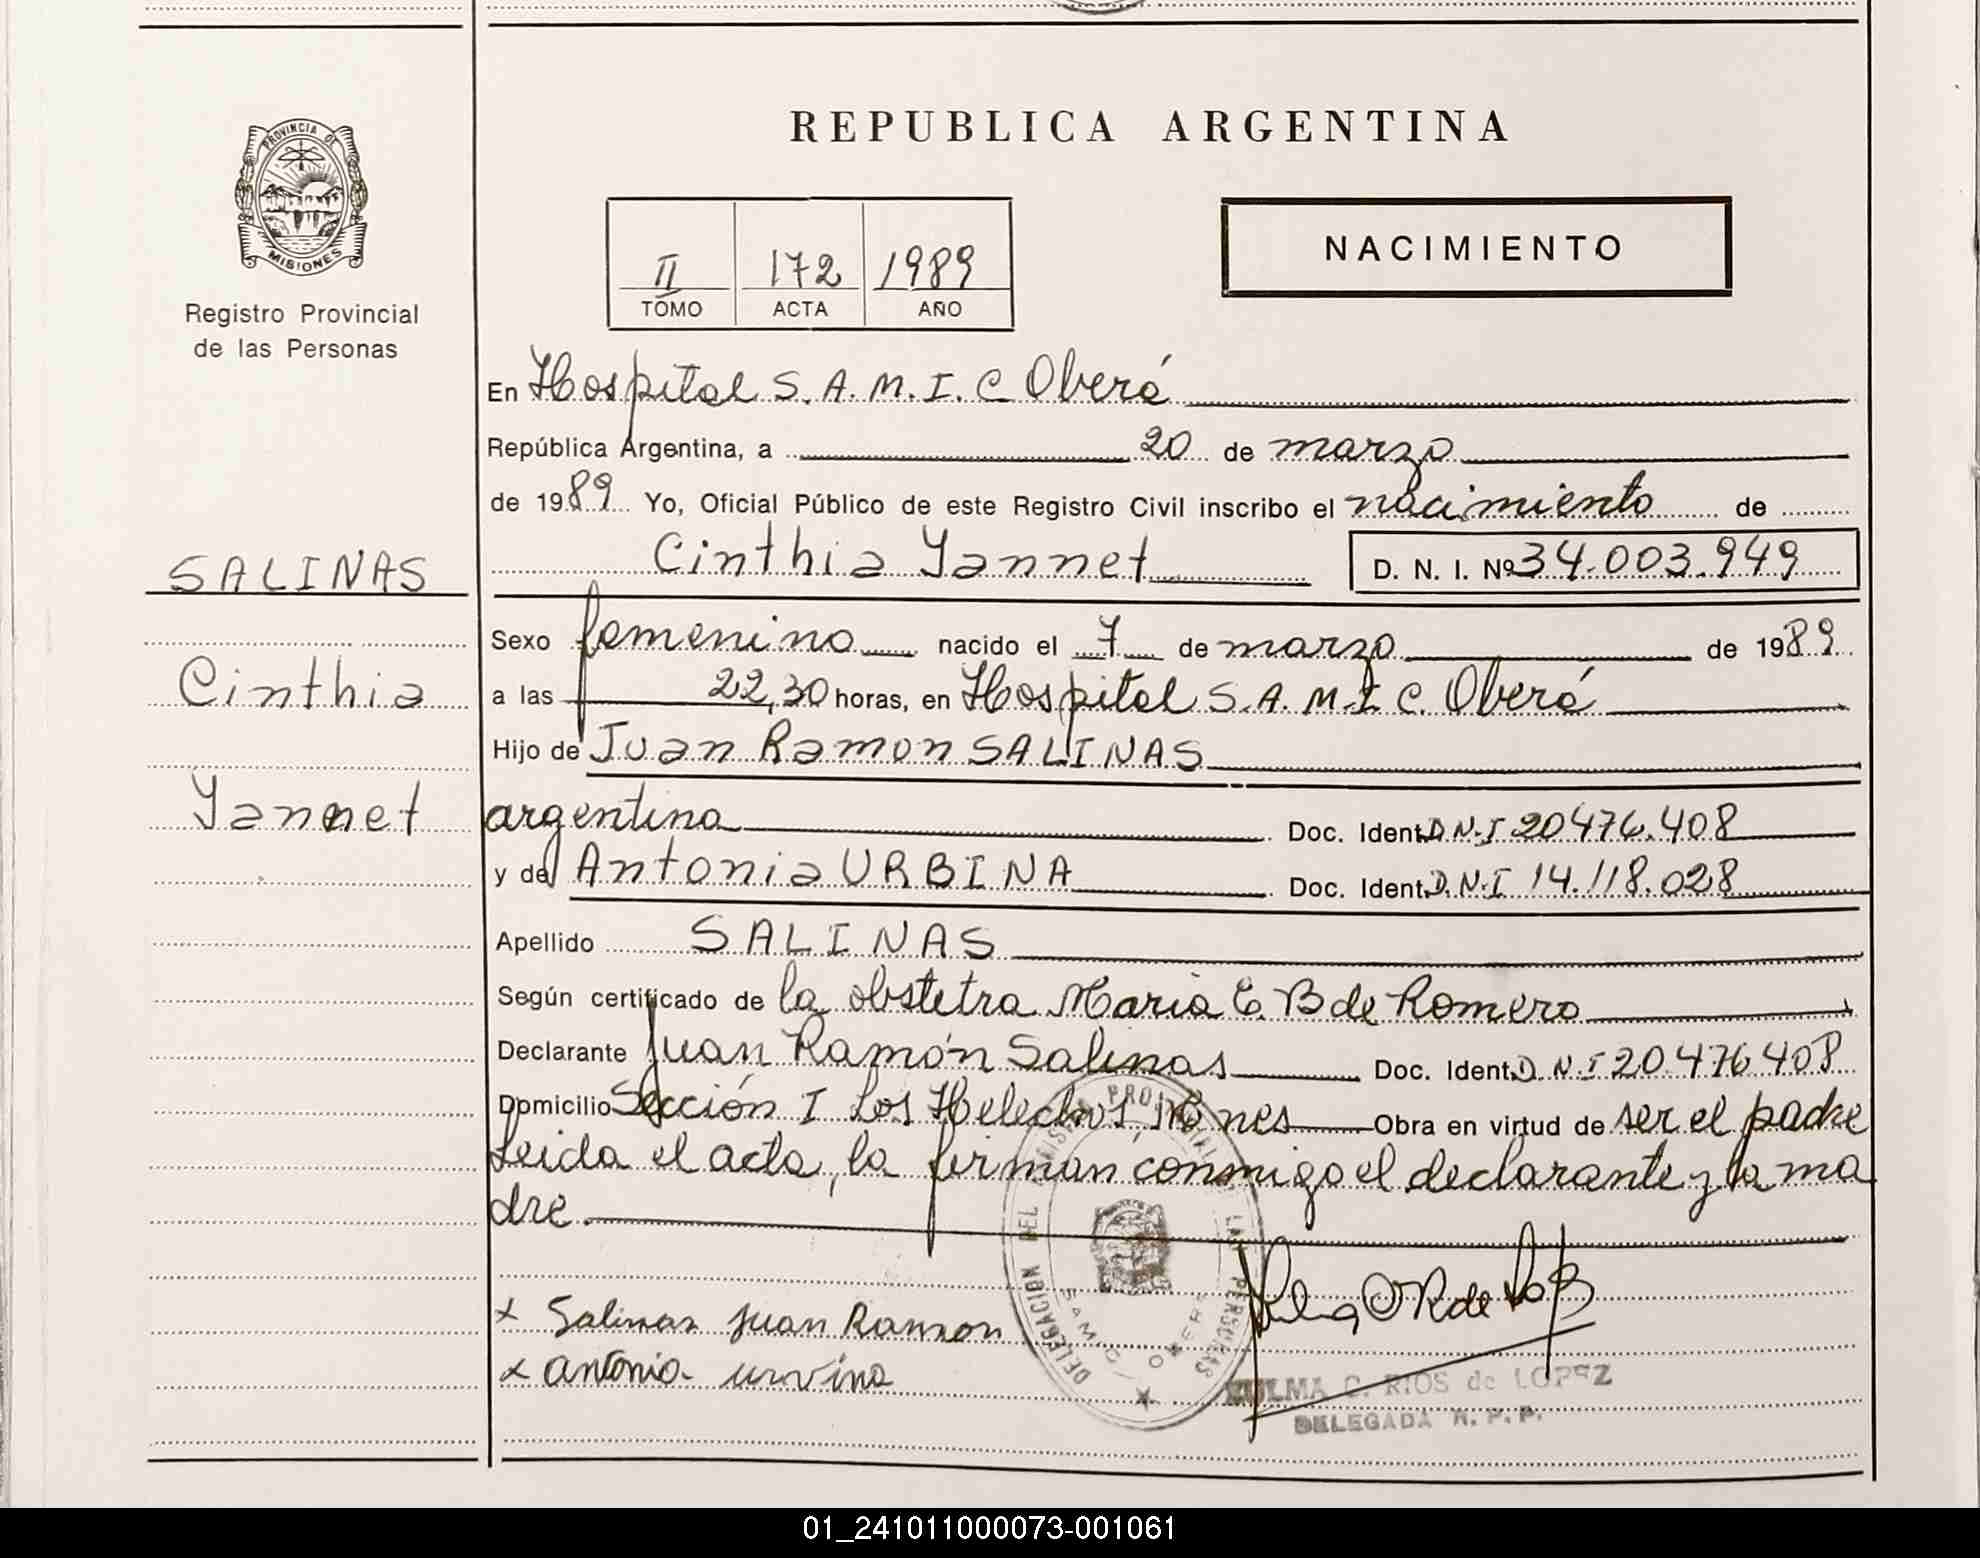 PROVINCIA DE
MISIONES
Registro Provincial
de las Personas
SALINAS
Cinthia
Yannet
REPUBLICA ARGENTINA
NACIMIENTO
II 172 1989
TOMO ACTA AÑO
En Hospital S.A.M.I.C Oberá
República Argentina, a 20 de marzo
de 1989 Yo, Oficial Público de este Registro Civil inscribo el nacimiento de
Cinthia Yannet D. N. I. Nº 34.003.949
Sexo femenino nacido el 7 de marzo de 1989
a las 22,30 horas, en Hospital S.A.M.I.C. Oberá
Hijo de Juan Ramon SALINAS
argentina Doc. Ident. D.N.I 20476.408
y de Antonia URBINA Doc. Ident. D.N.I 14.118.028
Apellido SALINAS
Según certificado de la obstetra Maria E. B de Romero
Declarante Juan Ramón Salinas Doc. Ident. D.N.I 20.476408
Domicilio Sección I Los Helechos, Mnes Obra en virtud de ser el padre
Leida el acta, la firman conmigo el declarante y la ma
dre.
DELEGACION DEL REGISTRO PROVINCIAL DE LAS PERSONAS
SAMIC OBERA
x Salinas Juan Ramon
x antonia urvina
ZULMA C. RIOS de LOPEZ
DELEGADA R. P. P.
01_241011000073-001061